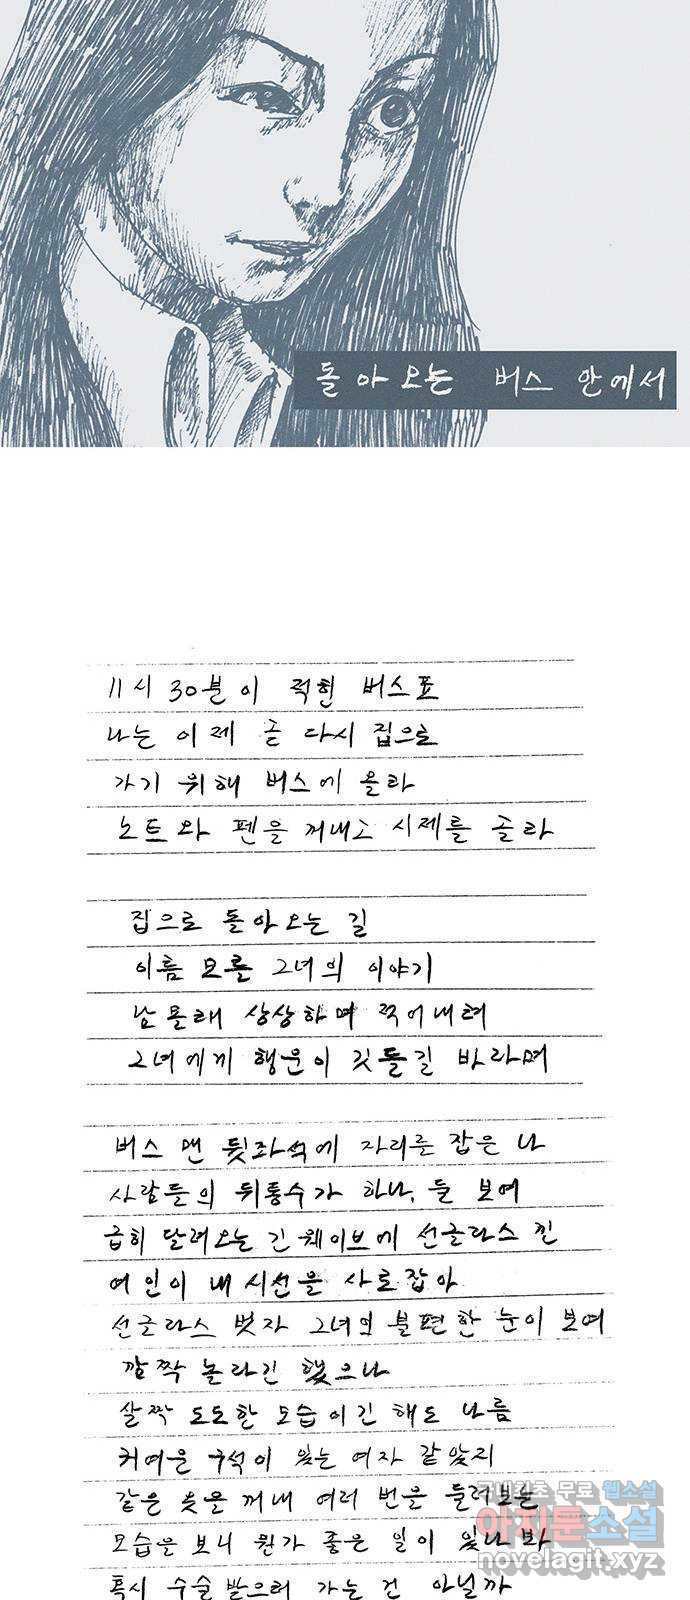 돌아오는 버스 안에서
11시 30분이 적힌 버스표
나는 이제 곧 다시 집으로
가기 위해 버스에 올라
노트와 펜을 꺼내고 시제를 골라
집으로 돌아오는 길
이름 모를 그녀의 이야기
남몰래 상상하며 적어내려
그녀에게 행운이 깃들길 바라며
버스 맨 뒷좌석에 자리를 잡은 나
사람들의 뒤통수가 하나, 둘 보여
급히 달려오는 긴 웨이브에 선글라스 낀
여인이 내 시선을 사로잡아
선글라스 벗자 그녀의 불편한 눈이 보여
깜짝 놀라긴 했으나
살짝 도도한 모습이긴 해도 나름
귀여운 구석이 있는 여자 같았지
같은 옷을 꺼내 여러 번을 둘러보는
모습을 보니 뭔가 좋은 일이 있나 봐
혹시 수술 받으러 가는 건 아닐까
국내최초 무료 웹소설
아지툰소설
novelagit.xyz